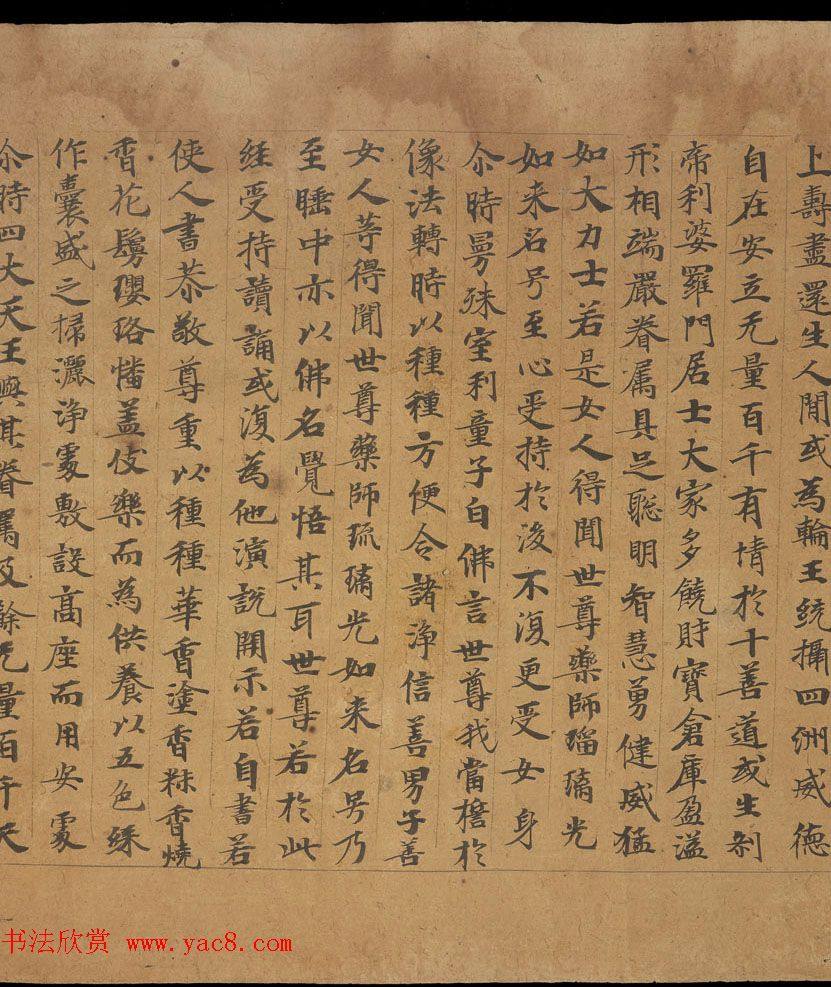 上壽盡還生人閒或為輪王統攝四洲威德
自在安立无量百千有情於十善道或生刹
帝利婆羅門居士大家多饒財寶倉庫盈溢
形相端嚴眷属具足聡明智慧勇健威猛
如大力士若是女人得聞世尊藥師瑠璃光
如来名号至心受持於後不復更受女身
尒時曼殊室利童子白佛言世尊我當擔於
像法轉時以種種方便令諸淨信善男子善
女人等得聞世尊藥師琉璃光如来名号乃
至睡中亦以佛名覺悟其耳世尊若於此
經受持讀誦或復為他演說開示若自書若
使人書恭敬尊重以種種華香塗香粖香燒
香花鬘瓔珞幡盖伎樂而為供養以五色綵
作囊盛之掃灑淨處敷設高座而用安處
尒時四大天王與其眷属及餘无量百千天
书法欣赏 www.yac8.com